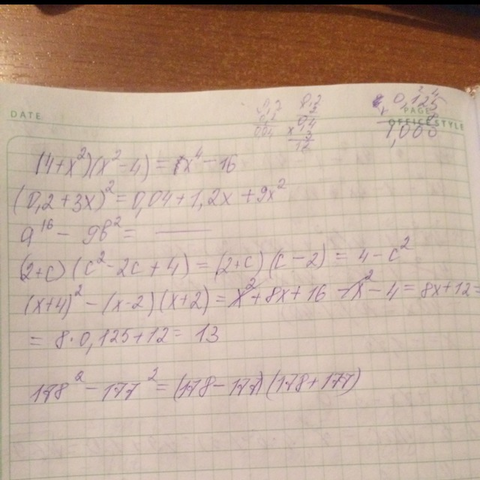 DATE
PAGE
OFFICE STYLE
0,125
1,000
(4+x²)(x²-4) = x⁴-16
(0,2+3x)² = 0,04+1,2x+9x²
a¹⁶ - 9b² = ——
(2+c)(c²-2c+4) = (2+c)(c-2) = 4-c²
(x+4)²-(x-2)(x+2) = x²+8x+16-x²-4 = 8x+12=
= 8·0,125+12 = 13
178²-177² = (178-177)(178+177)